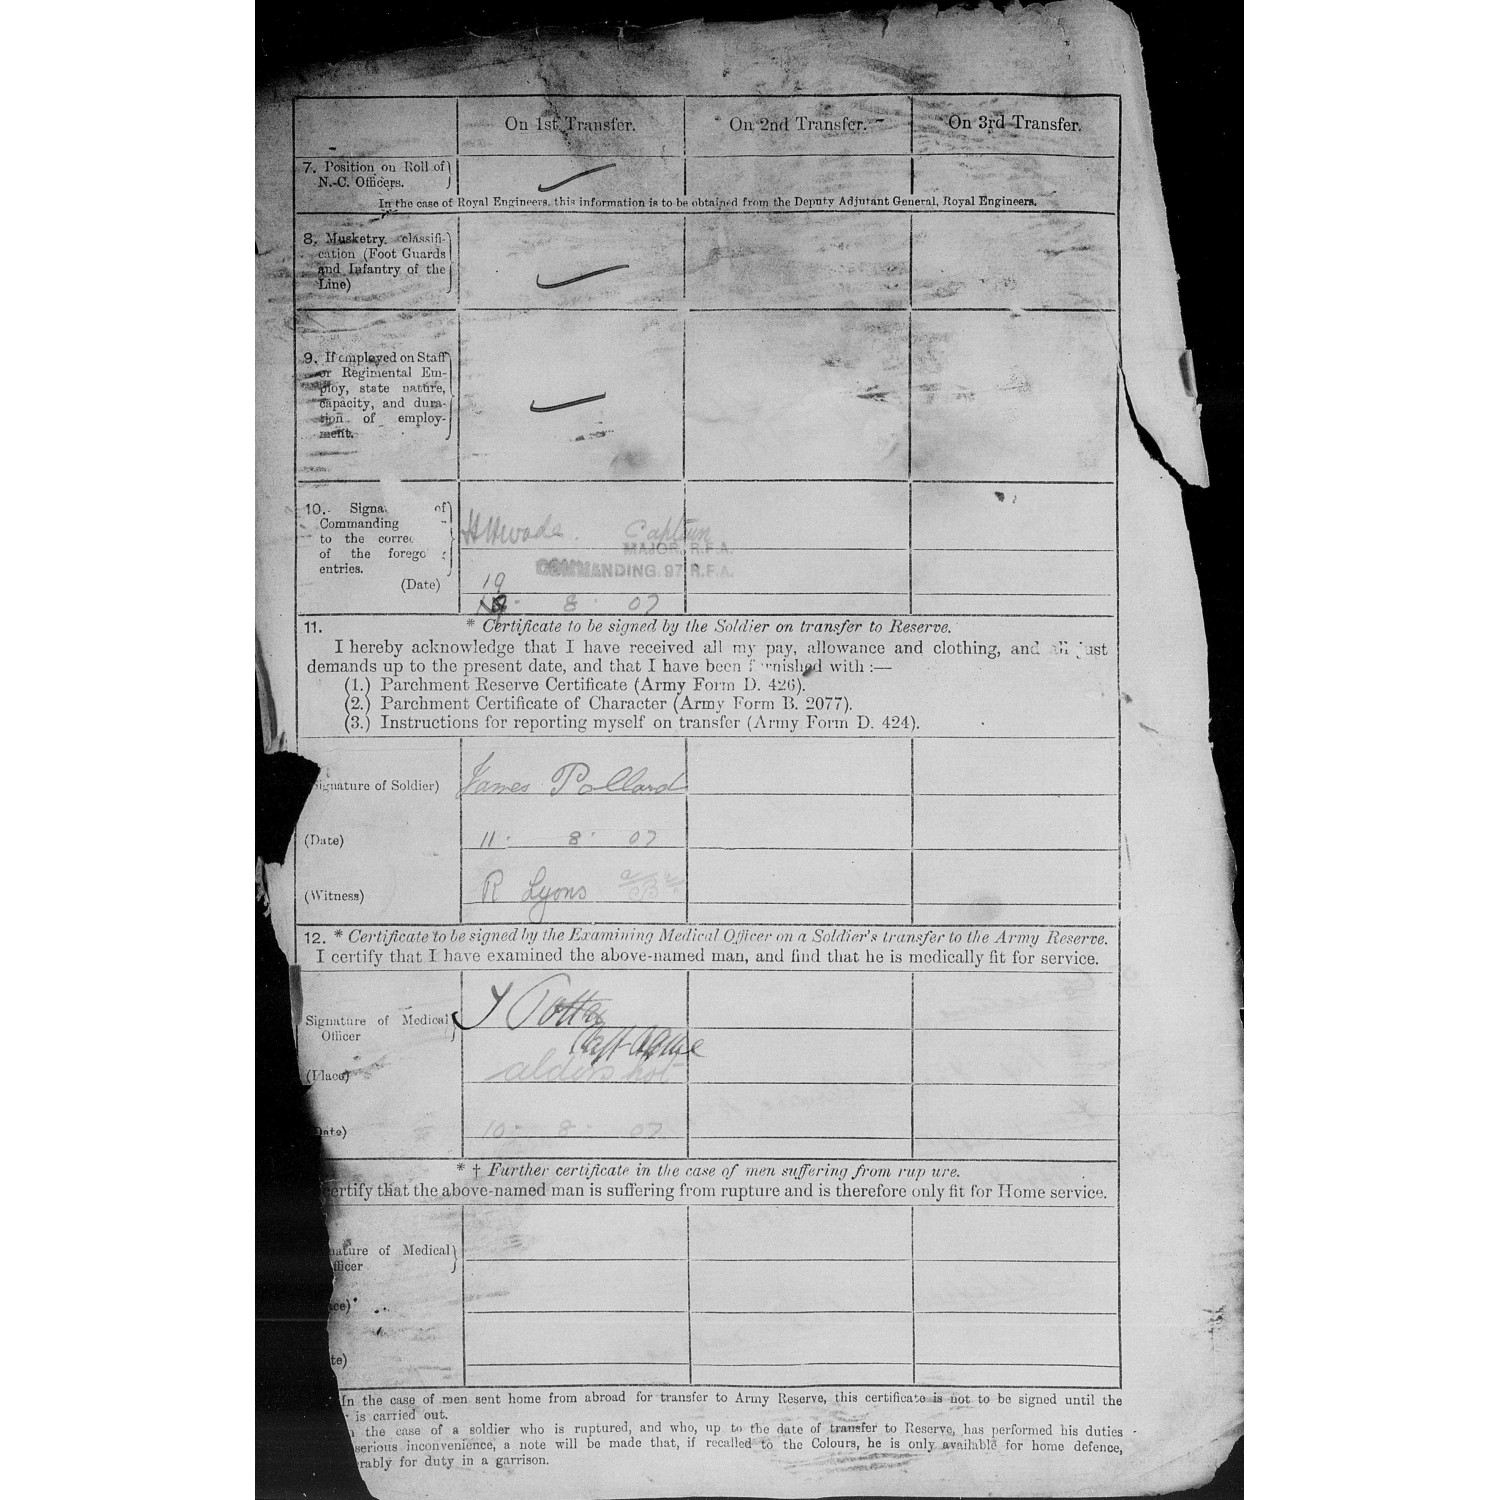 On 1st Transfer. On 2nd Transfer. On 3rd Transfer.
7. Position on Roll of
N.-C. Officers.
In the case of Royal Engineers, this information is to be obtained from the Deputy Adjutant General, Royal Engineers.
8. Musketry classifi-
cation (Foot Guards
and Infantry of the
Line)
9. If employed on Staff
or Regimental Em-
ploy, state nature,
capacity, and dura-
tion of employ-
ment.
10. Signa of
Commanding
to the correc
of the forego
entries.
Captain
MAJOR, R.F.A.
COMMANDING. 97 R.F.A.
(Date)
19
8 07
11. * Certificate to be signed by the Soldier on transfer to Reserve.
I hereby acknowledge that I have received all my pay, allowance and clothing, and all just
demands up to the present date, and that I have been f rnished with :—
(1.) Parchment Reserve Certificate (Army Form D. 426).
(2.) Parchment Certificate of Character (Army Form B. 2077).
(3.) Instructions for reporting myself on transfer (Army Form D. 424).
Signature of Soldier) James Pollard
(Date) 11 8 07
(Witness) R Lyons
12. * Certificate to be signed by the Examining Medical Officer on a Soldier's transfer to the Army Reserve.
I certify that I have examined the above-named man, and find that he is medically fit for service.
Signature of Medical
Officer
Potter
Capt
(Place) aldershot
Date) 10 8 07
* † Further certificate in the case of men suffering from rup ure.
ertify that the above-named man is suffering from rupture and is therefore only fit for Home service.
nature of Medical
fficer
ce)
te)
In the case of men sent home from abroad for transfer to Army Reserve, this certificate is not to be signed until the
is carried out.
the case of a soldier who is ruptured, and who, up to the date of transfer to Reserve, has performed his duties
serious inconvenience, a note will be made that, if recalled to the Colours, he is only available for home defence,
rably for duty in a garrison.